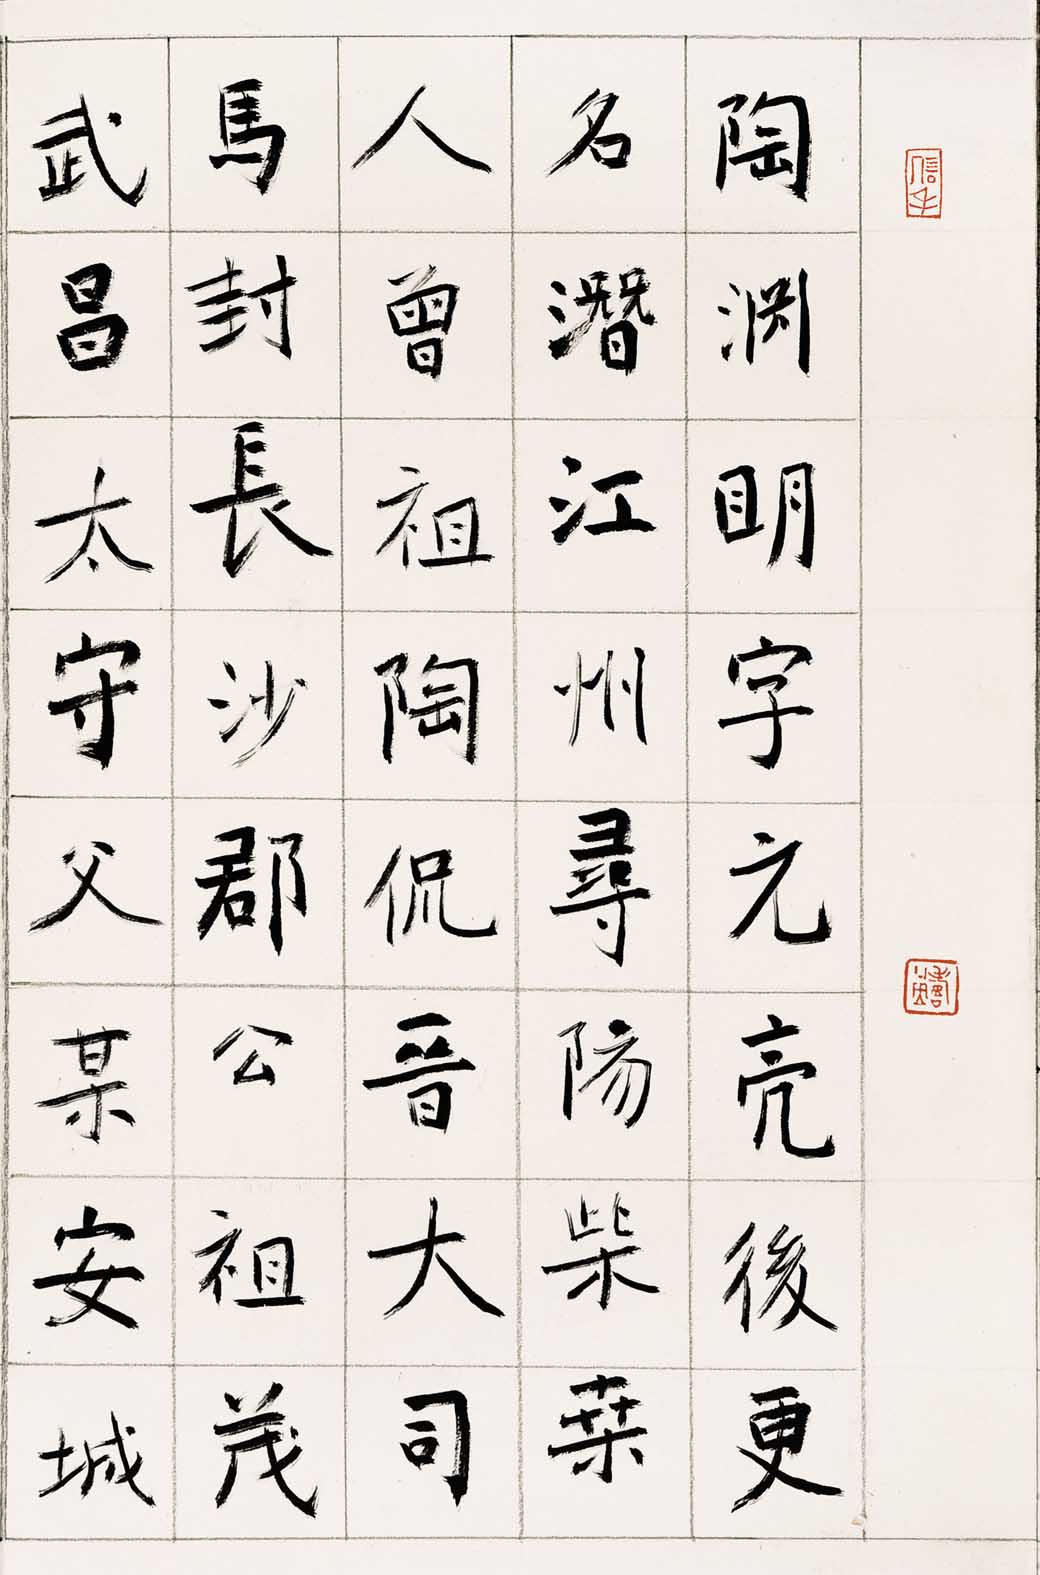 陶渊明字元亮後更
名潛江州尋陽柴桒
人曾祖陶侃晉大司
馬封長沙郡公祖茂
武昌太守父某安城